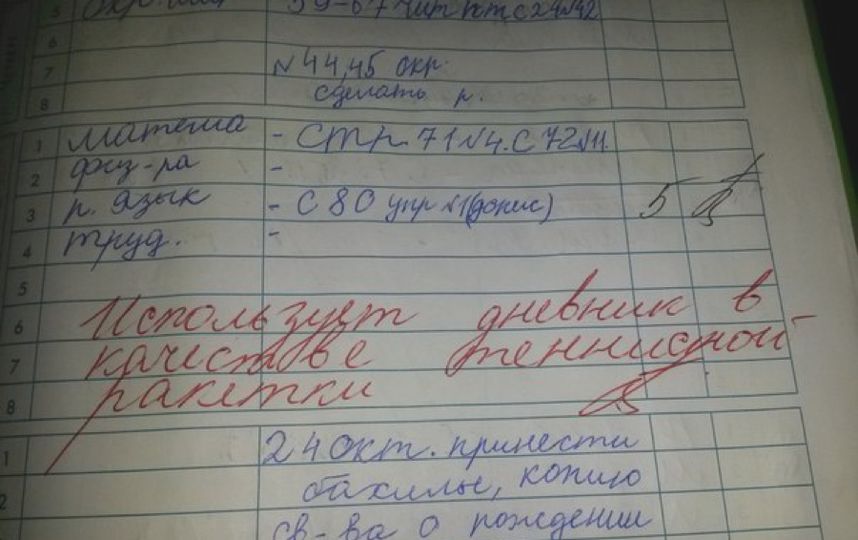 5
6
7 № 44,45 окр.
8 сделать р.
1 математ - стр. 71 № 4. с 72 № 11.
2 физ-ра -
3 р. язык - с 80 упр № 1 (допис) 5
4 труд. -
5
6 Использует дневник в
7 качестве теннисной
8 ракетки
1 24 окт. принести
2 бахилы, копию
св-ва о рождении